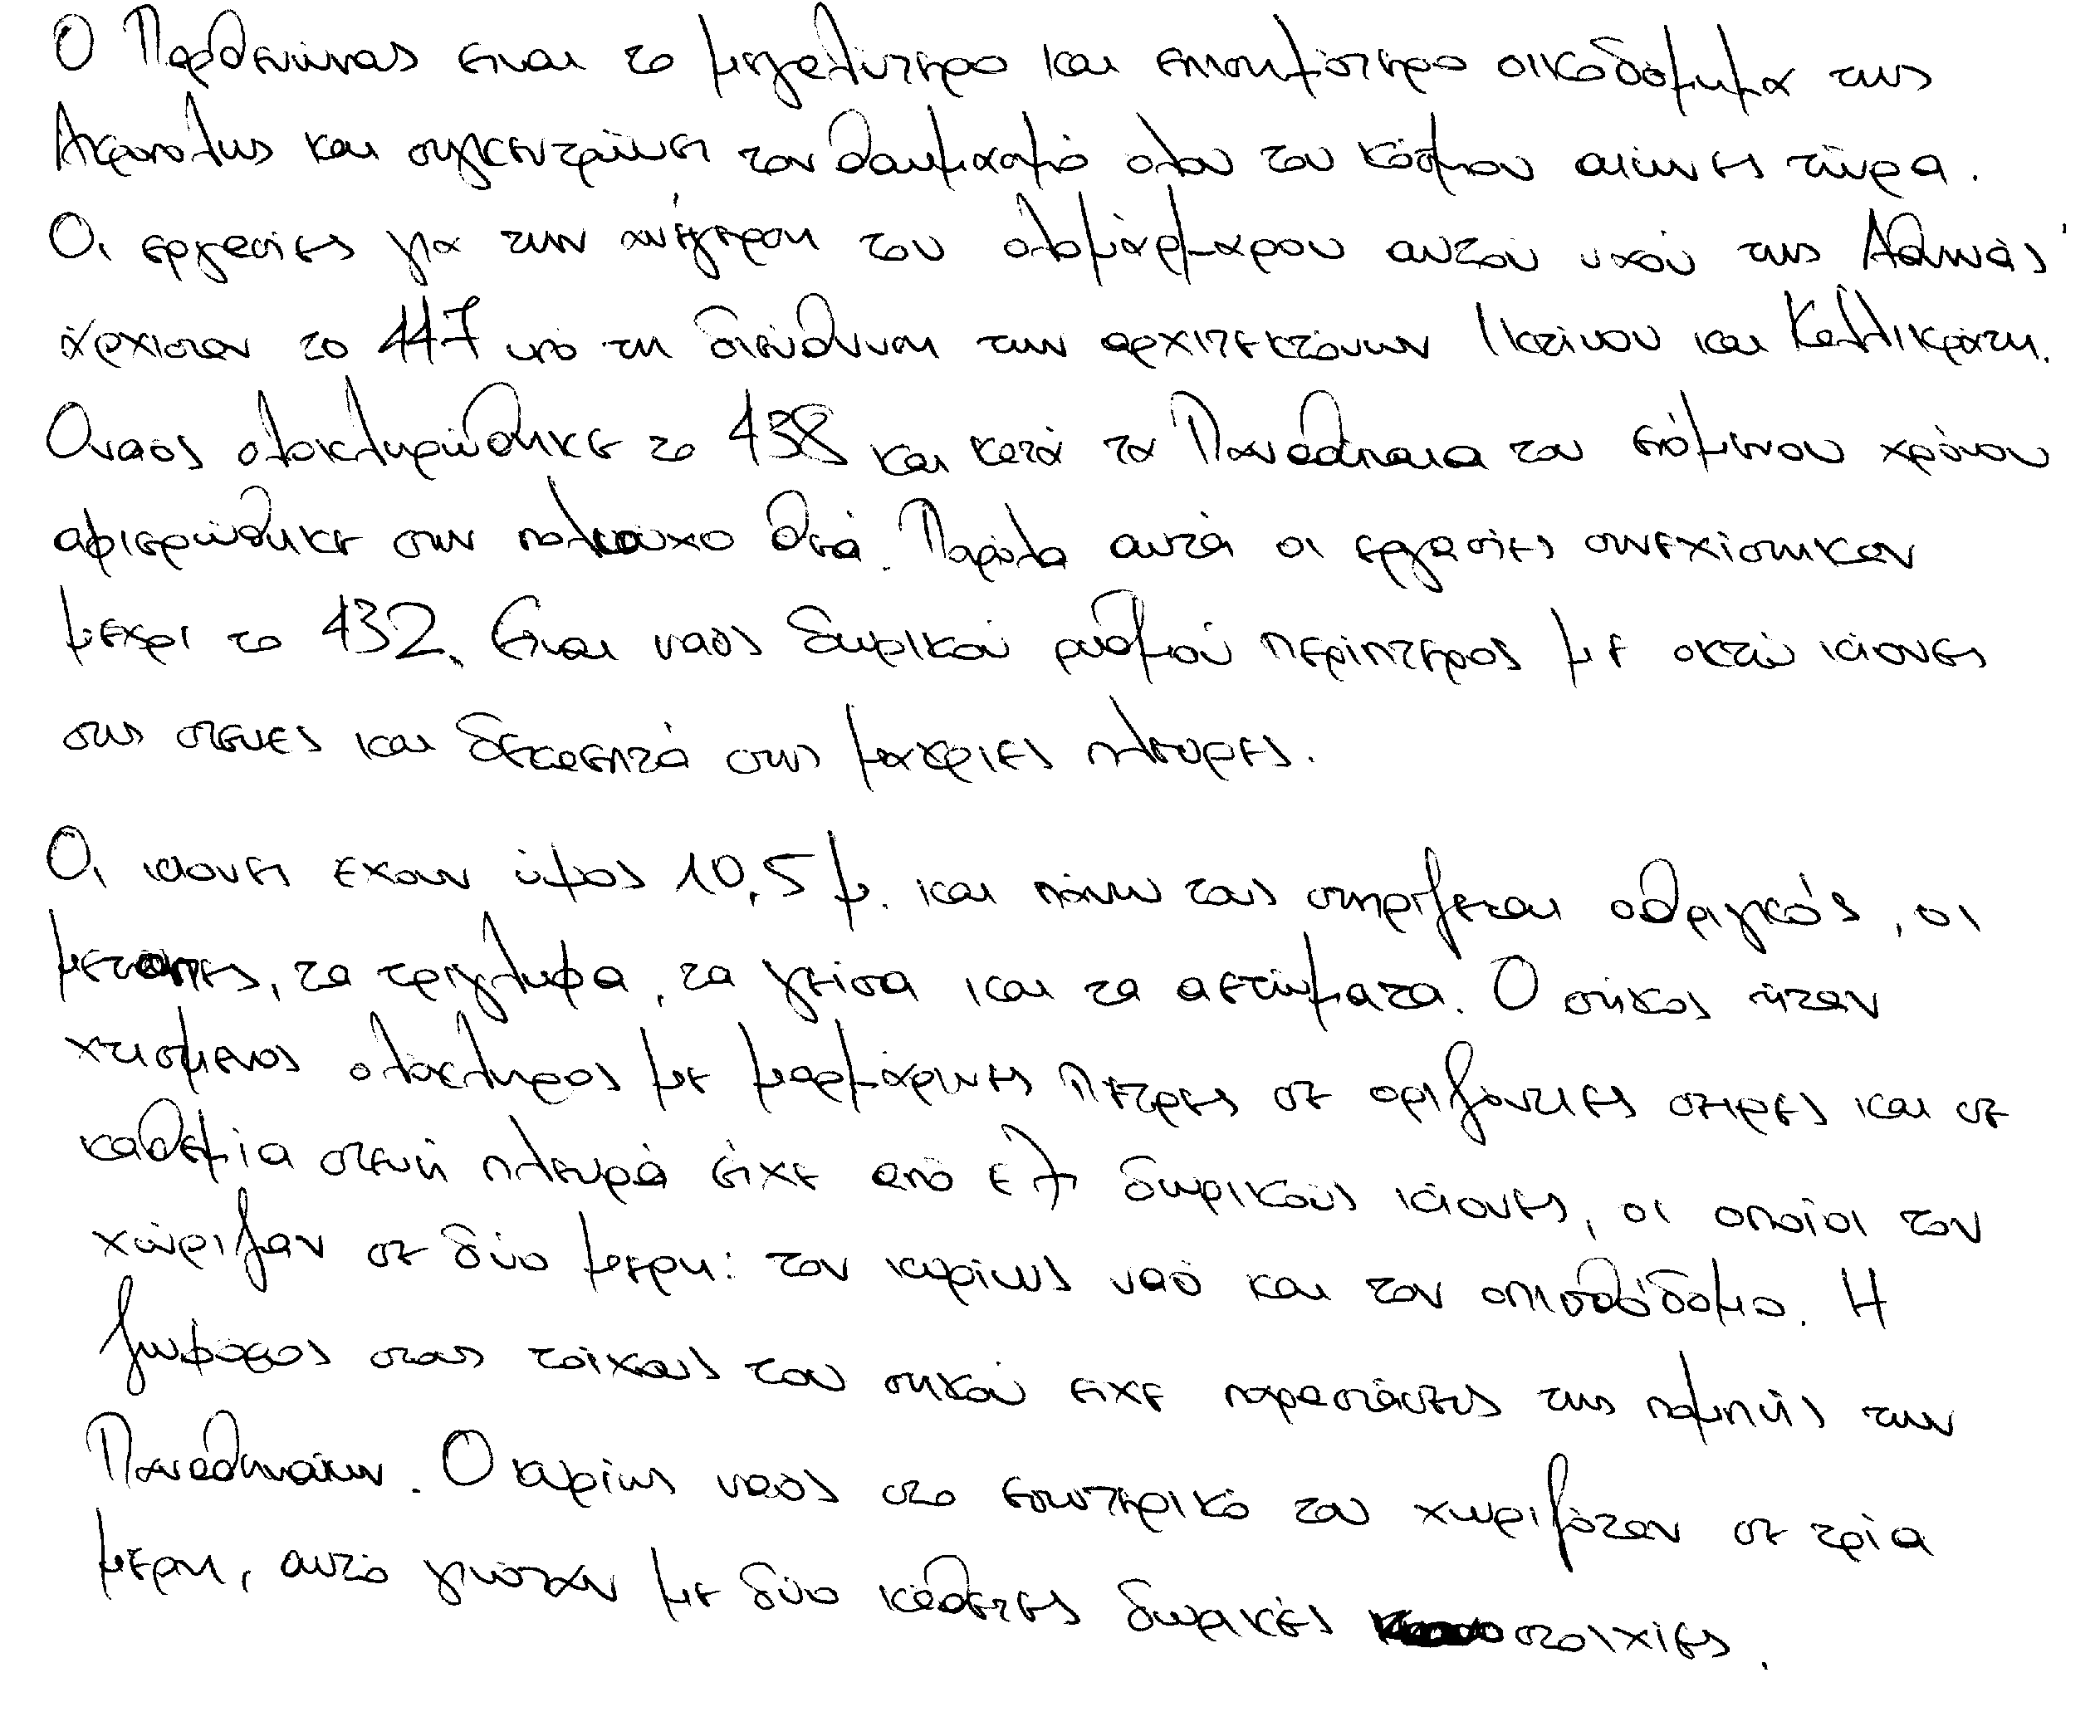 Ο Παρθενώνας ειναι το μεγαλύτερο και επισημότερο οικοδόμημα της
Ακροπολης και συγκεντρώνει τον θαυμασμό ολου του κόσμου αιώνες τώρα.
Οι εργασίες για την ανέγερση του ολομάρμαρου αυτού ναού της Αθηνάς
άρχισαν το 447 υπό τη διεύθυνση των αρχιτεκτόνων Ικτίνου και Καλλικράτη.
Ο ναός ολοκληρώθηκε το 438 και κατά τα Παναθήναια του επόμενου χρόνου
αφιερώθηκε στην πολιούχο θεά. Παρόλα αυτά οι εργασίες συνεχίστηκαν
μεχρι το 432. Ειναι ναός δωρικού ρυθμού περίπτερος με οκτώ κίονες
στις στενες και δεκαεπτά στις μακριες πλευρες.
Οι κιονες εχουν ύψος 10,5 μ. και πάνω τους στηρίζεται ο θριγκός, οι
μετοπες, τα τριγλυφα, τα γείσα και τα αετώματα. Ο σήκος ήταν
χτισμενος ολόκληρος με μαρμάρινες πετρες σε οριζόντιες σειρες και σε
καθεμία στενή πλευρά είχε από εξι δωρικούς κίονες, οι οποίοι τον
χώριζαν σε δύο μερη: τον κυρίως ναό και τον οπισθόδομο. Η
ζωφόρος στους τοίχους του σηκού ειχε παραστάσεις της πομπής των
Παναθηναίων. Ο κυρίως ναός στο εσωτερικό του χωριζόταν σε τρία
μέρη, αυτό γινόταν με δύο κάθετες δωρικές στοιχίες.